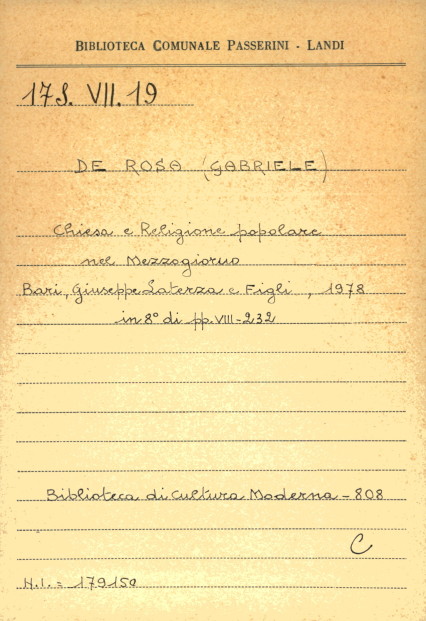 BIBLIOTECA COMUNALE PASSERINI - LANDI
17S. VII. 19
DE ROSA (GABRIELE)
Chiesa e Religione popolare
nel Mezzogiorno
Bari, Giuseppe Laterza e Figli, 1978
in 8° di pp. VIII-232
Biblioteca di Cultura Moderna - 808
C
N.I. = 179150